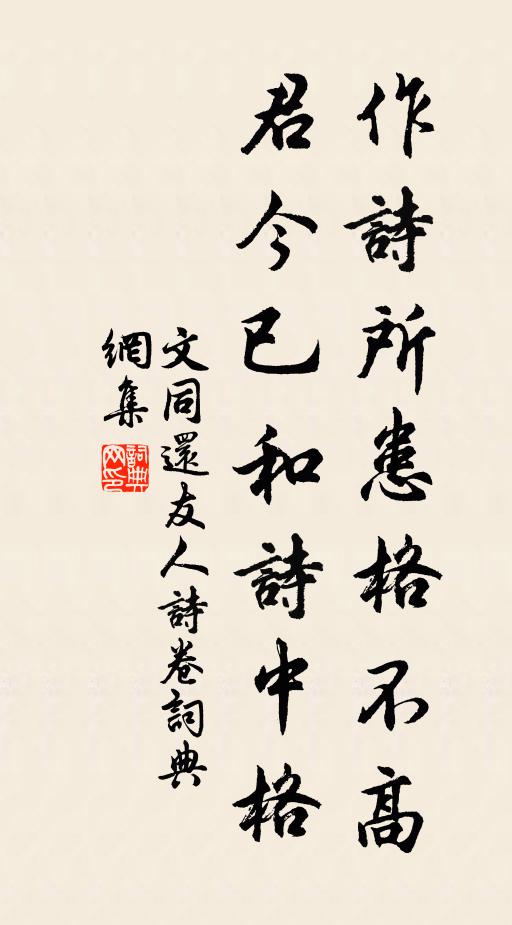 作詩所患格不高
君今已和詩中格
文同還友人詩卷詞典
網集
詞典網印